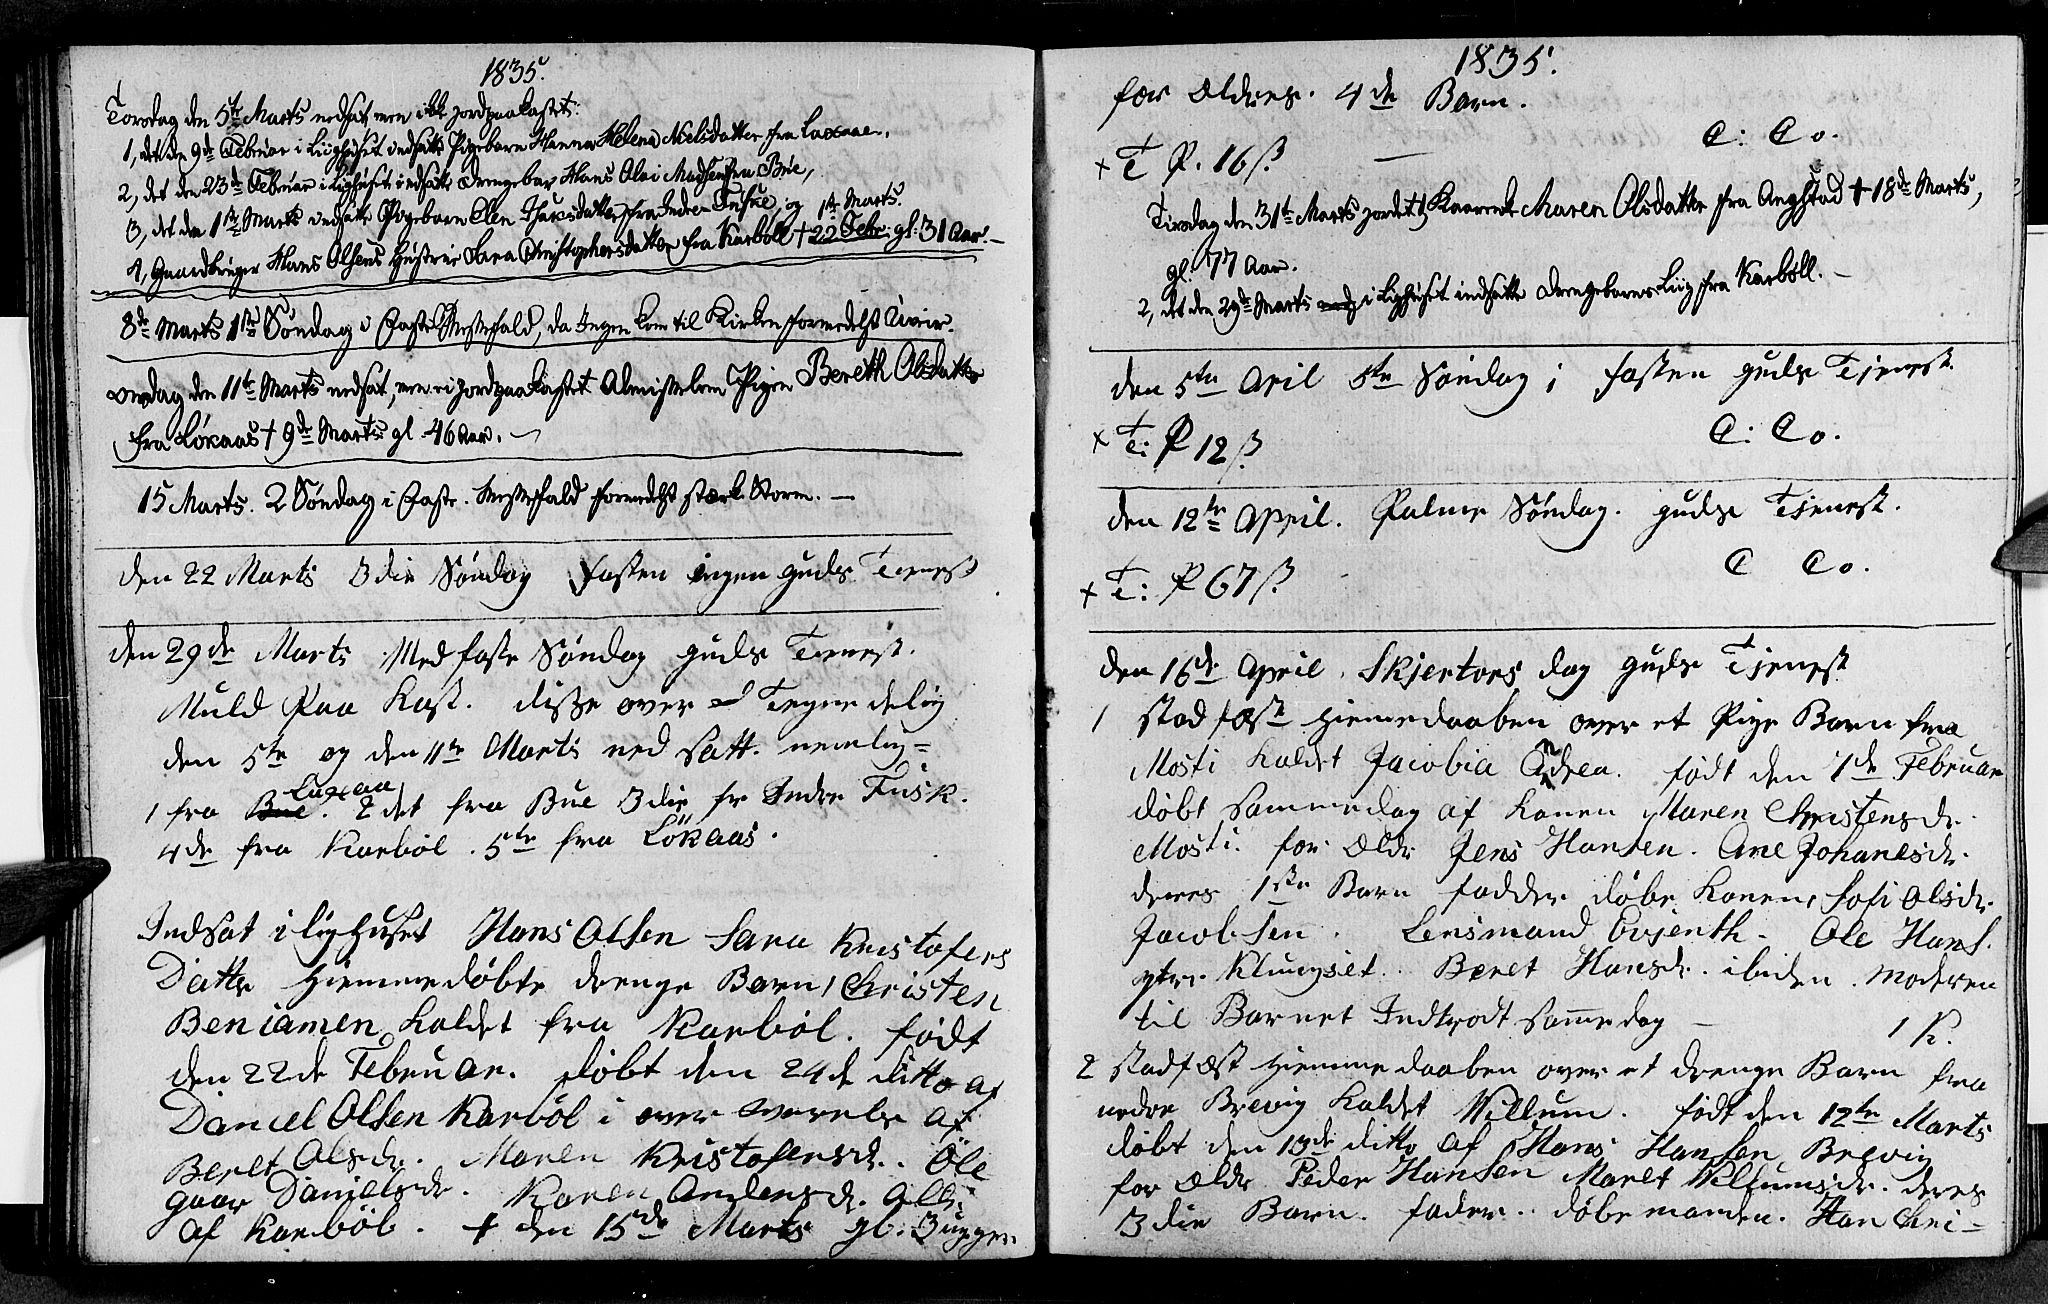 1835.
Torsdag den 5te Marts nedsat men ikke jordpaakastet:
1, det den 9de Februar i Liighuset indsatte Pigebarn Hanna Helena Nielsdatter fra Laxaae,
2, det den 23de Februar i Lighuset indsatte Drengebar Hans Olai Madsen fra Bue,
3, det den 1ste Marts indsatte Pigebarn Elen Jhansdatter fra Indre Fuske, og 1ste Marts.
4, Gaardbruger Hans Olsens Hustrue Sara Christophersdatter fra Karbøll + 22 Febr. gl: 31 Aar. —
8de Marts 1ste Søndag i Faste Messefald, da Ingen kom til Kirken formedelst Uveir.
Onsdag den 11te Marts nedsat, men ei jordpaakastet Almisselem Pigen Bereth Olsdatter
fra Løkaas + 9de Marts gl. 46 Aar. —
15 Marts. 2 Søndag i Faste. Messefald formedelst stærk Storm. —
den 22 Marts 3die Søndag i fasten ingen guds Tienest
den 29de Marts Med faste Søndag guds Tienest.
Muld Paa Kast. disse over Tegnedelig
den 5te og den 11te Marts ned satt. nemlig =
Laxaa
1 fra Bue. 2 det fra Bue 3die fr Indre Fusk.
4de fra Karbøl. 5te fra Løkaas.
Indsat i lighuset Hans Olsen Sara Kristofers
Datter hiemmedøbte drenge Barn, Christen
Beniamen kaldet fra Karbøl. født
den 22de Februar. døbt den 24de ditto af
Daniel Olsen Karbøl i over værelse af
Beret Olsdr. Maren Kristofersdr. Ole
Danielsdr. Karen Andersdr. alle
af Karbøl. + den 15de Marts gl. 3 uger.
1835.
for Ældres. 4de Barn.
C: Co.
+ T P. 16 ß —
Tirsdag den 31te Marts jordet 1, Kaarenk. Maren Olsdatter fra Aagstad + 18de Marts,
gl. 77 Aar.
2, det den 29de Marts i Lighuset indsatte Drengebarns Liig fra Karbøll. —
den 5te April 5te Søndag i fasten guds Tjenest.
C: Co.
+ T: P 12 ß
den 12te April. Palme Søndag. guds Tjenest.
C Co.
+ T: P 67 ß.
den 16de April. Skjertors dag guds Tjenest
1 stadfæst hiemedaaben over et Pige Barn fra
Mosti kaldet Jacobia Andrea. født den 1de Februar
døbt sammedag af konen Maren Christensdr.
Mosti. for Ældr Jens Hansen. Ane Johanesdr.
deres 1ste Barn fadder døbe konen, Sofi Olsdr.
Jacobsen. Lensmand Evjenth. Ole Hans.
Klungset. Beret Hansdr. ibiden. moderen
til Barnet Indtrødt sammedag — 1 K.
2 stadfæst hiemmedaaben over et drenge Barn fra
nedre Brevig kaldet Willum. født den 12te Marts
døbt den 13de ditto af Hans Hansen Brevig
for Ældr Peder Hansen Maret Willumsdr. deres
3die Barn. fader. døbe manden. Han Chri-